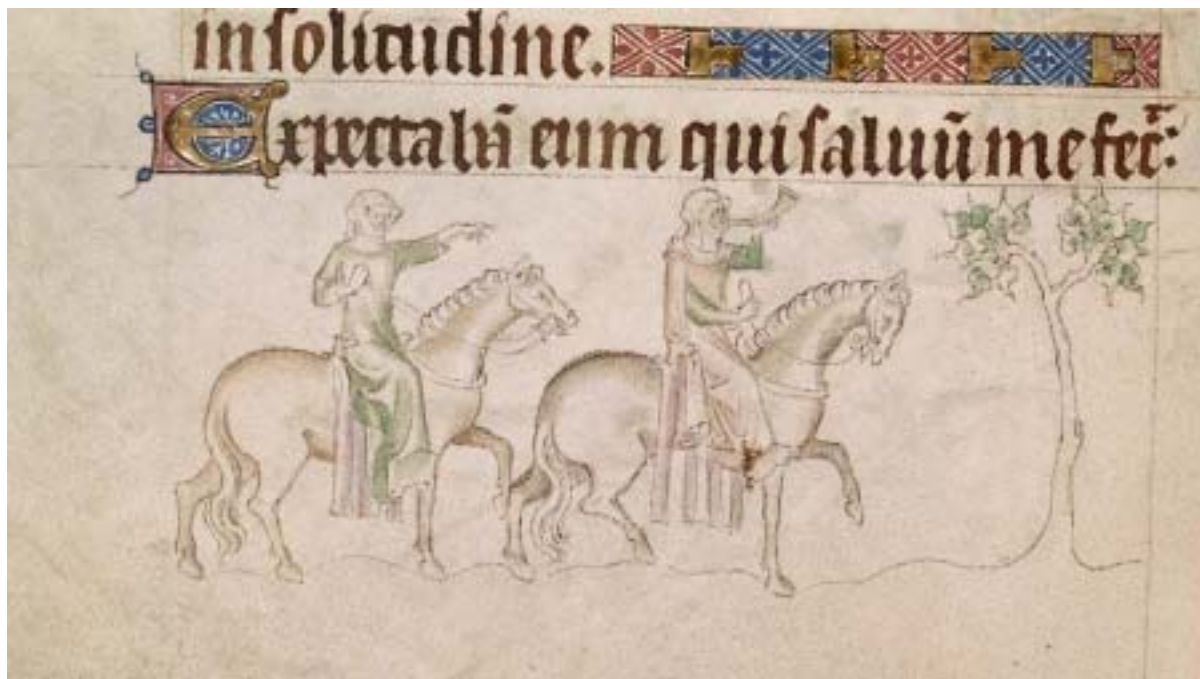 in solitudine.
Expectabā eum qui saluū me fec̄: